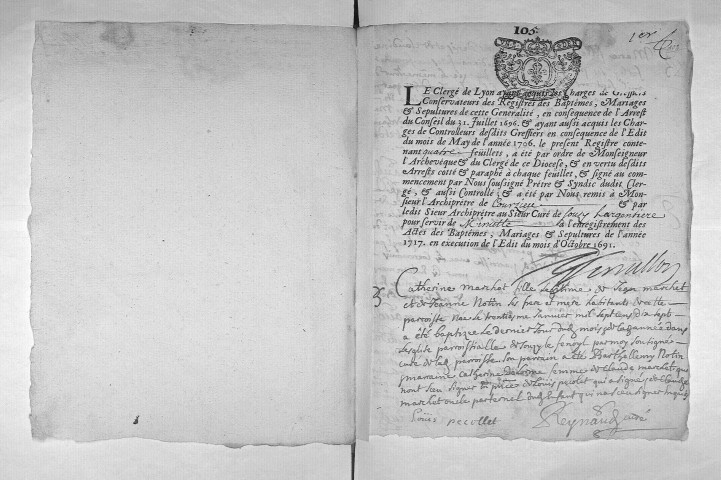 105.
1er
LE Clergé de Lyon ayant acquis les Charges de Greffiers
Conservateurs des Registres des Baptêmes, Mariages
& Sepultures de cette Generalité, en consequence de l'Arrest
du Conseil du 31. Juillet 1696. & ayant aussi acquis les Char-
ges de Controlleurs desdits Greffiers en consequence de l'Edit
du mois de May de l'année 1706. le present Registre conte-
nant quatre feuillets, a été par ordre de Monseigneur
l'Archevêque & du Clergé de ce Diocese, & en vertu desdits
Arrests cotté & paraphé à chaque feuillet, & signé au com-
mencement par Nous soussigné Prêtre & Syndic dudit Cler-
gé, & aussi Controllé; & a été par Nous remis à Mon-
sieur l'Archiprêtre de Courzieu & par
ledit Sieur Archiprêtre au Sieur Curé de Souzy Largentiere
pour servir de Minutte à l'enregistrement des
Actes des Baptêmes; Mariages & Sepultures de l'année
1717. en execution de l'Edit du mois d'Octobre 1691.
Catherine marchet fille legitime de Jean marchet
et de Jeanne Notin ses pere et mere habitants de cette
parroisse nee le trentieme Janvier mil sept cens dix sept
a été baptizee le dernier Jour dud. mois et de lad. année dans
l'eglise parroissialle de Souzy par moy soussigné
curé de lad. parroisse son parrain a été Barthelemy Notin
marraine Catherine femme de Claude marchet qui
nont sceu signer en presence de Louis pecollet qui a signé et de Claude
marchet oncle paternel dud. Enfant qui na sceu signer
Loüis pecollet Reynaud curé